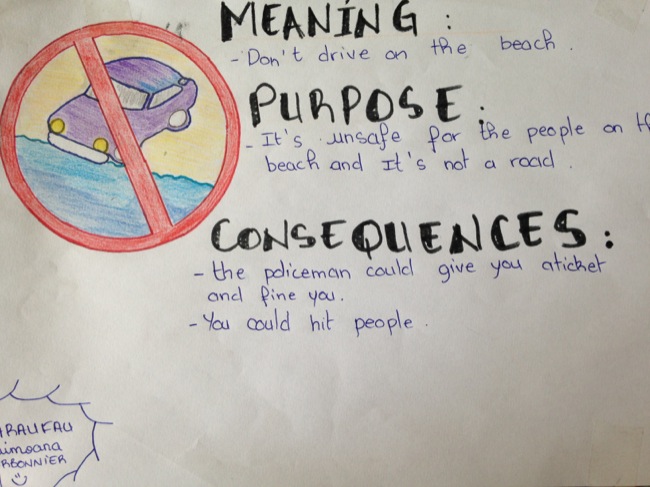 MEANING :
- Don't drive on the beach .
PURPOSE .
- It's unsafe for the people on th
beach and It's not a road .
CONSEQUENCES :
- the policeman could give you aticket
and fine you .
- You could hit people .
RAUFAU
imoana
RBONNIER